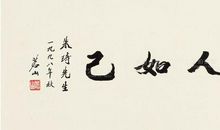 人如己
朱琦先生
一九九八年秋
茗山